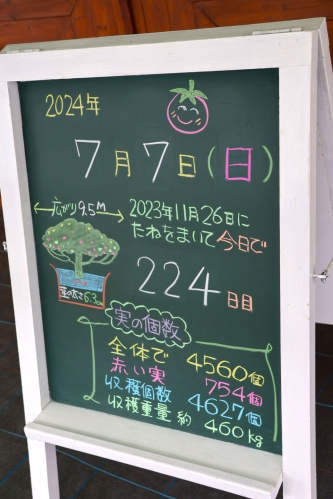 2024年
7月7日(日)
広がり9.5m
2023年11月26日に
たねをまいて今日で
224日目
茎の太さ6.3cm
実の個数
全体で 4560個
赤い実 754個
収穫個数 4627個
収穫重量 約 460kg